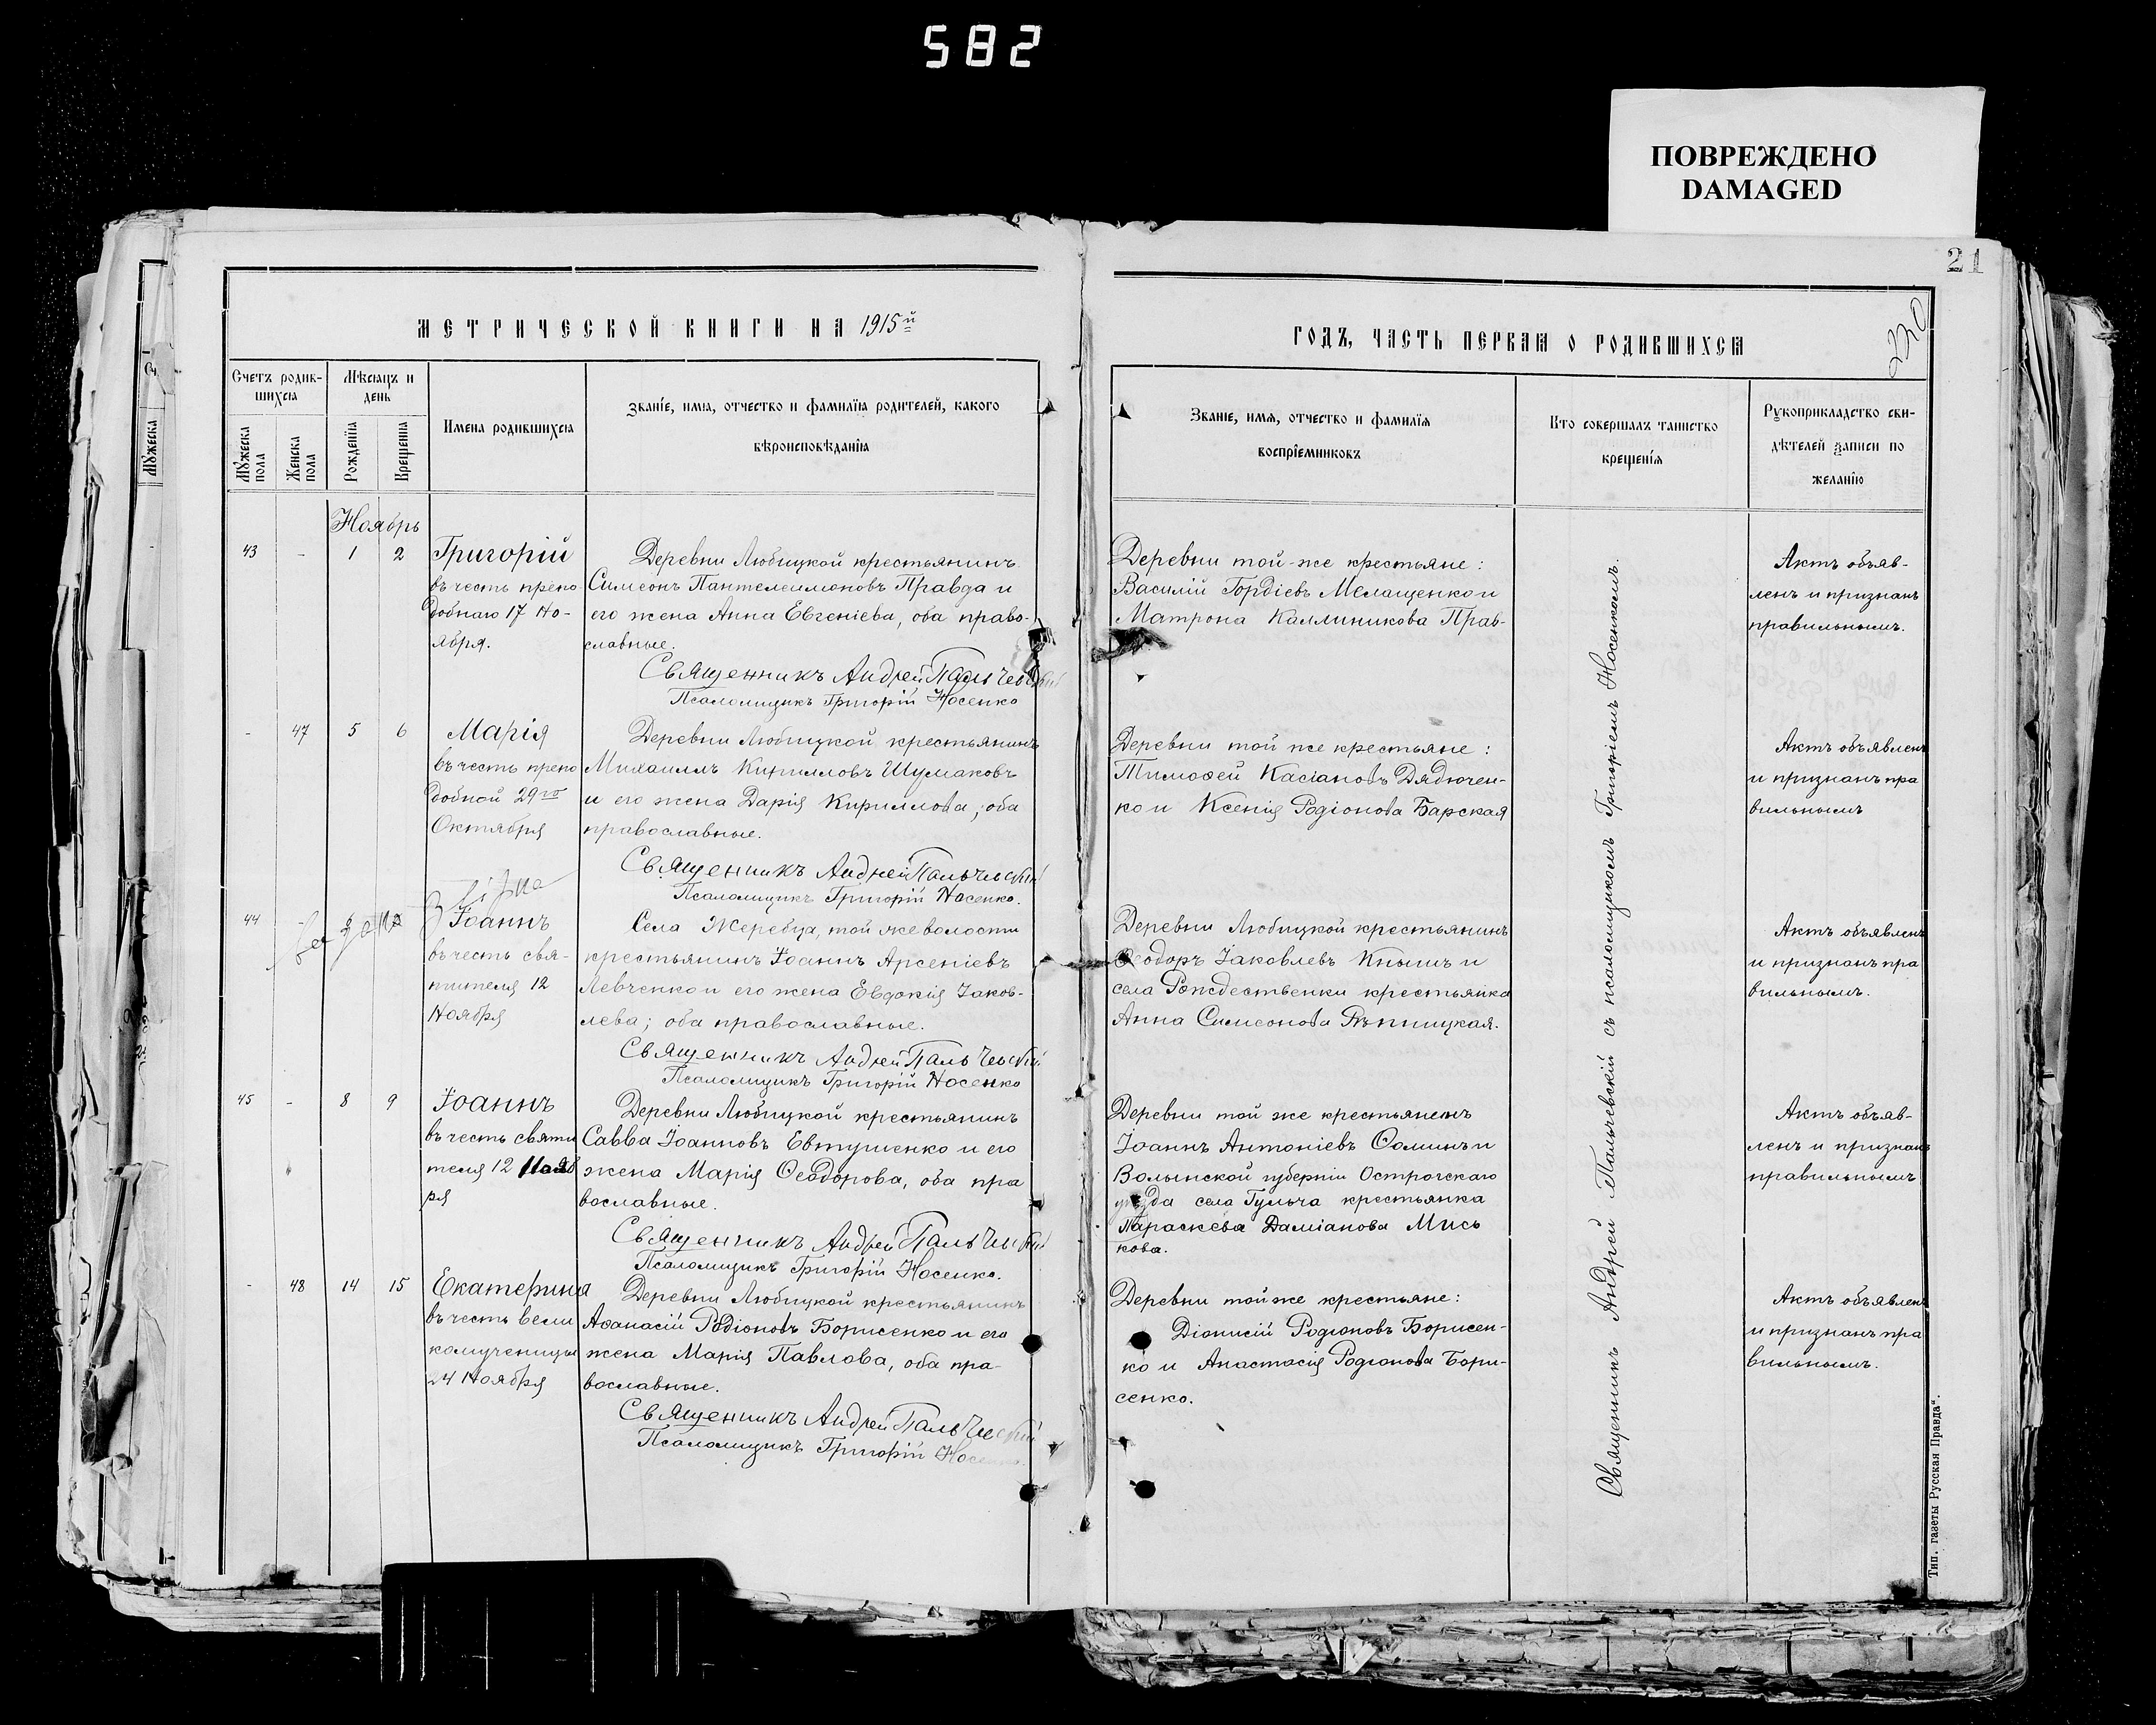 582
ПОВРЕЖДЕНО
DAMAGED
21
230
МЕТРИЧЕСКОЙ КНИГИ НА 1915й
ГОДЪ, ЧАСТЬ ПЕРВАЯ О РОДИВШИХСЯ
Счетъ родив-
шихся
Мужеска пола
Женска пола
Мѣсяцъ и
день
Рожденія
Крещенія
Имена родившихся
Званіе, имя, отчество и фамилія родителей, какого
вѣроисповѣданія
Званіе, имя, отчество и фамилія
воспріемниковъ
Кто совершалъ таинство
крещенія
Рукоприкладство сви-
дѣтелей записи по
желанію
Мужеска
Ноябрь
43 - 1 2
Григорій
въ честь препо
добнаго 17 Но-
ября.
Деревни Любицкой крестьянинъ
Симеонъ Пантелеимоновъ Правда и
его жена Анна Евгеніева, оба право-
славные.
Священникъ Андрей Пальчевскій
Псаломщикъ Григорій Носенко
Деревни той-же крестьяне:
Василій Гордіевъ Мелащенко и
Матрона Каллиникова Прав-
Актъ объяв-
ленъ и признанъ
правильнымъ.
- 47 5 6
Марія
въ честь препо
добной 29го
Октября
Деревни Любицкой крестьянинъ
Михаилъ Кирилловъ Шумаковъ
и его жена Дарія Кириллова, оба
православные.
Священникъ Андрей Пальчевскій
Псаломщикъ Григорій Носенко.
Деревни той же крестьяне:
Тимофей Касіановъ Дядючен-
ко и Ксенія Родіонова Барская
Актъ объявленъ
и признанъ пра
вильнымъ
44 -
Іоаннъ
въ честь свя-
тителя 12
Ноября
Села Жеребца, той же волости
крестьянинъ Іоаннъ Арсеніевъ
Левченко и его жена Евдокія Іаков-
лева; оба православные.
Священникъ Андрей Пальчевскій
Псаломщикъ Григорій Носенко
Деревни Любицкой крестьянинъ
Ѳеодоръ Іаковлевъ Кнышъ и
села Рождественки крестьянка
Анна Симеонова Рѣпницкая.
Актъ объявленъ
и признанъ пра
вильнымъ.
45 - 8 9
Іоаннъ
въ честь святи
теля 12 Нояб
ря
Деревни Любицкой крестьянинъ
Савва Іоанновъ Евтушенко и его
жена Марія Ѳеодорова, оба пра
вославные.
Священникъ Андрей Пальчевскій
Псаломщикъ Григорій Носенко.
Деревни той же крестьяненъ
Іоаннъ Антоніевъ Соминъ и
Волынской губерніи Острогскаго
уѣзда села Гульча крестьянка
Параскева Даміанова Мись
кова.
Актъ объяв-
ленъ и признанъ
правильнымъ
- 48 14 15
Екатерина
въ честь вели
комученицы
24 Ноября
Деревни Любицкой крестьянинъ
Аѳанасій Родіоновъ Борисенко и его
жена Марія Павлова, оба пра-
вославные.
Священникъ Андрей Пальчевскій
Псаломщикъ Григорій Носенко
Деревни той же крестьяне:
Діонисій Родіоновъ Борисен-
ко и Анастасія Родіонова Бори-
сенко.
Актъ объявленъ
и признанъ пра
вильнымъ.
Священникъ Андрей Пальчевскій съ псаломщикомъ Григоріемъ Носенкомъ.
Тип. газеты Русская Правда".